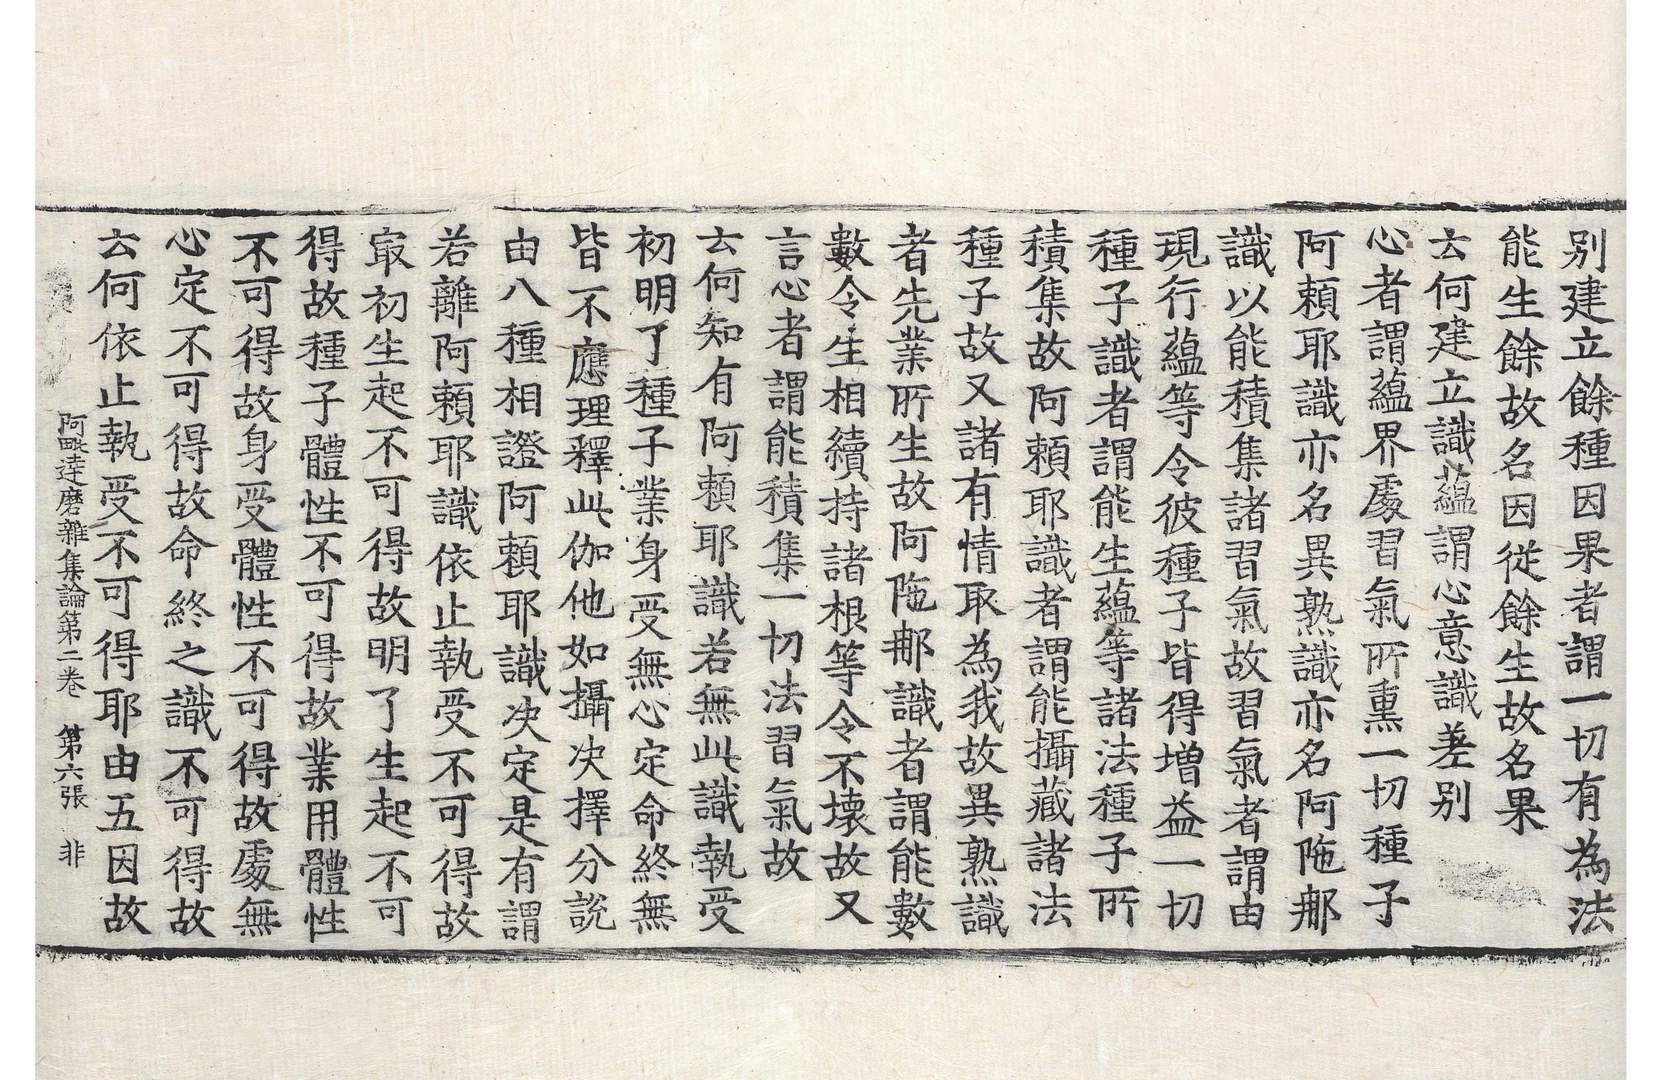 别建立餘種因果者謂一切有為法
能生餘故名因從餘生故名果
云何建立識蘊謂心意識差别
心者謂蘊界處習氣所熏一切種子
阿賴耶識亦名異熟識亦名阿陁那
識以能積集諸習氣故習氣者謂由
現行蘊等令彼種子皆得增益一切
種子識者謂能生蘊等諸法種子所
積集故阿賴耶識者謂能攝藏諸法
種子故又諸有情取為我故異熟識
者先業所生故阿陁那識者謂能數
數令生相續持諸根等令不壞故又
言心者謂能積集一切法習氣故
云何知有阿賴耶識若無此識執受
初明了種子業身受無心定命終無
皆不應理釋此伽他如攝决擇分說
由八種相證阿賴耶識决定是有謂
若離阿賴耶識依止執受不可得故
㝡初生起不可得故明了生起不可
得故種子體性不可得故業用體性
不可得故身受體性不可得故處無
心定不可得故命終之識不可得故
云何依止執受不可得耶由五因故
阿毗達磨雜集論第二卷 第六張 非